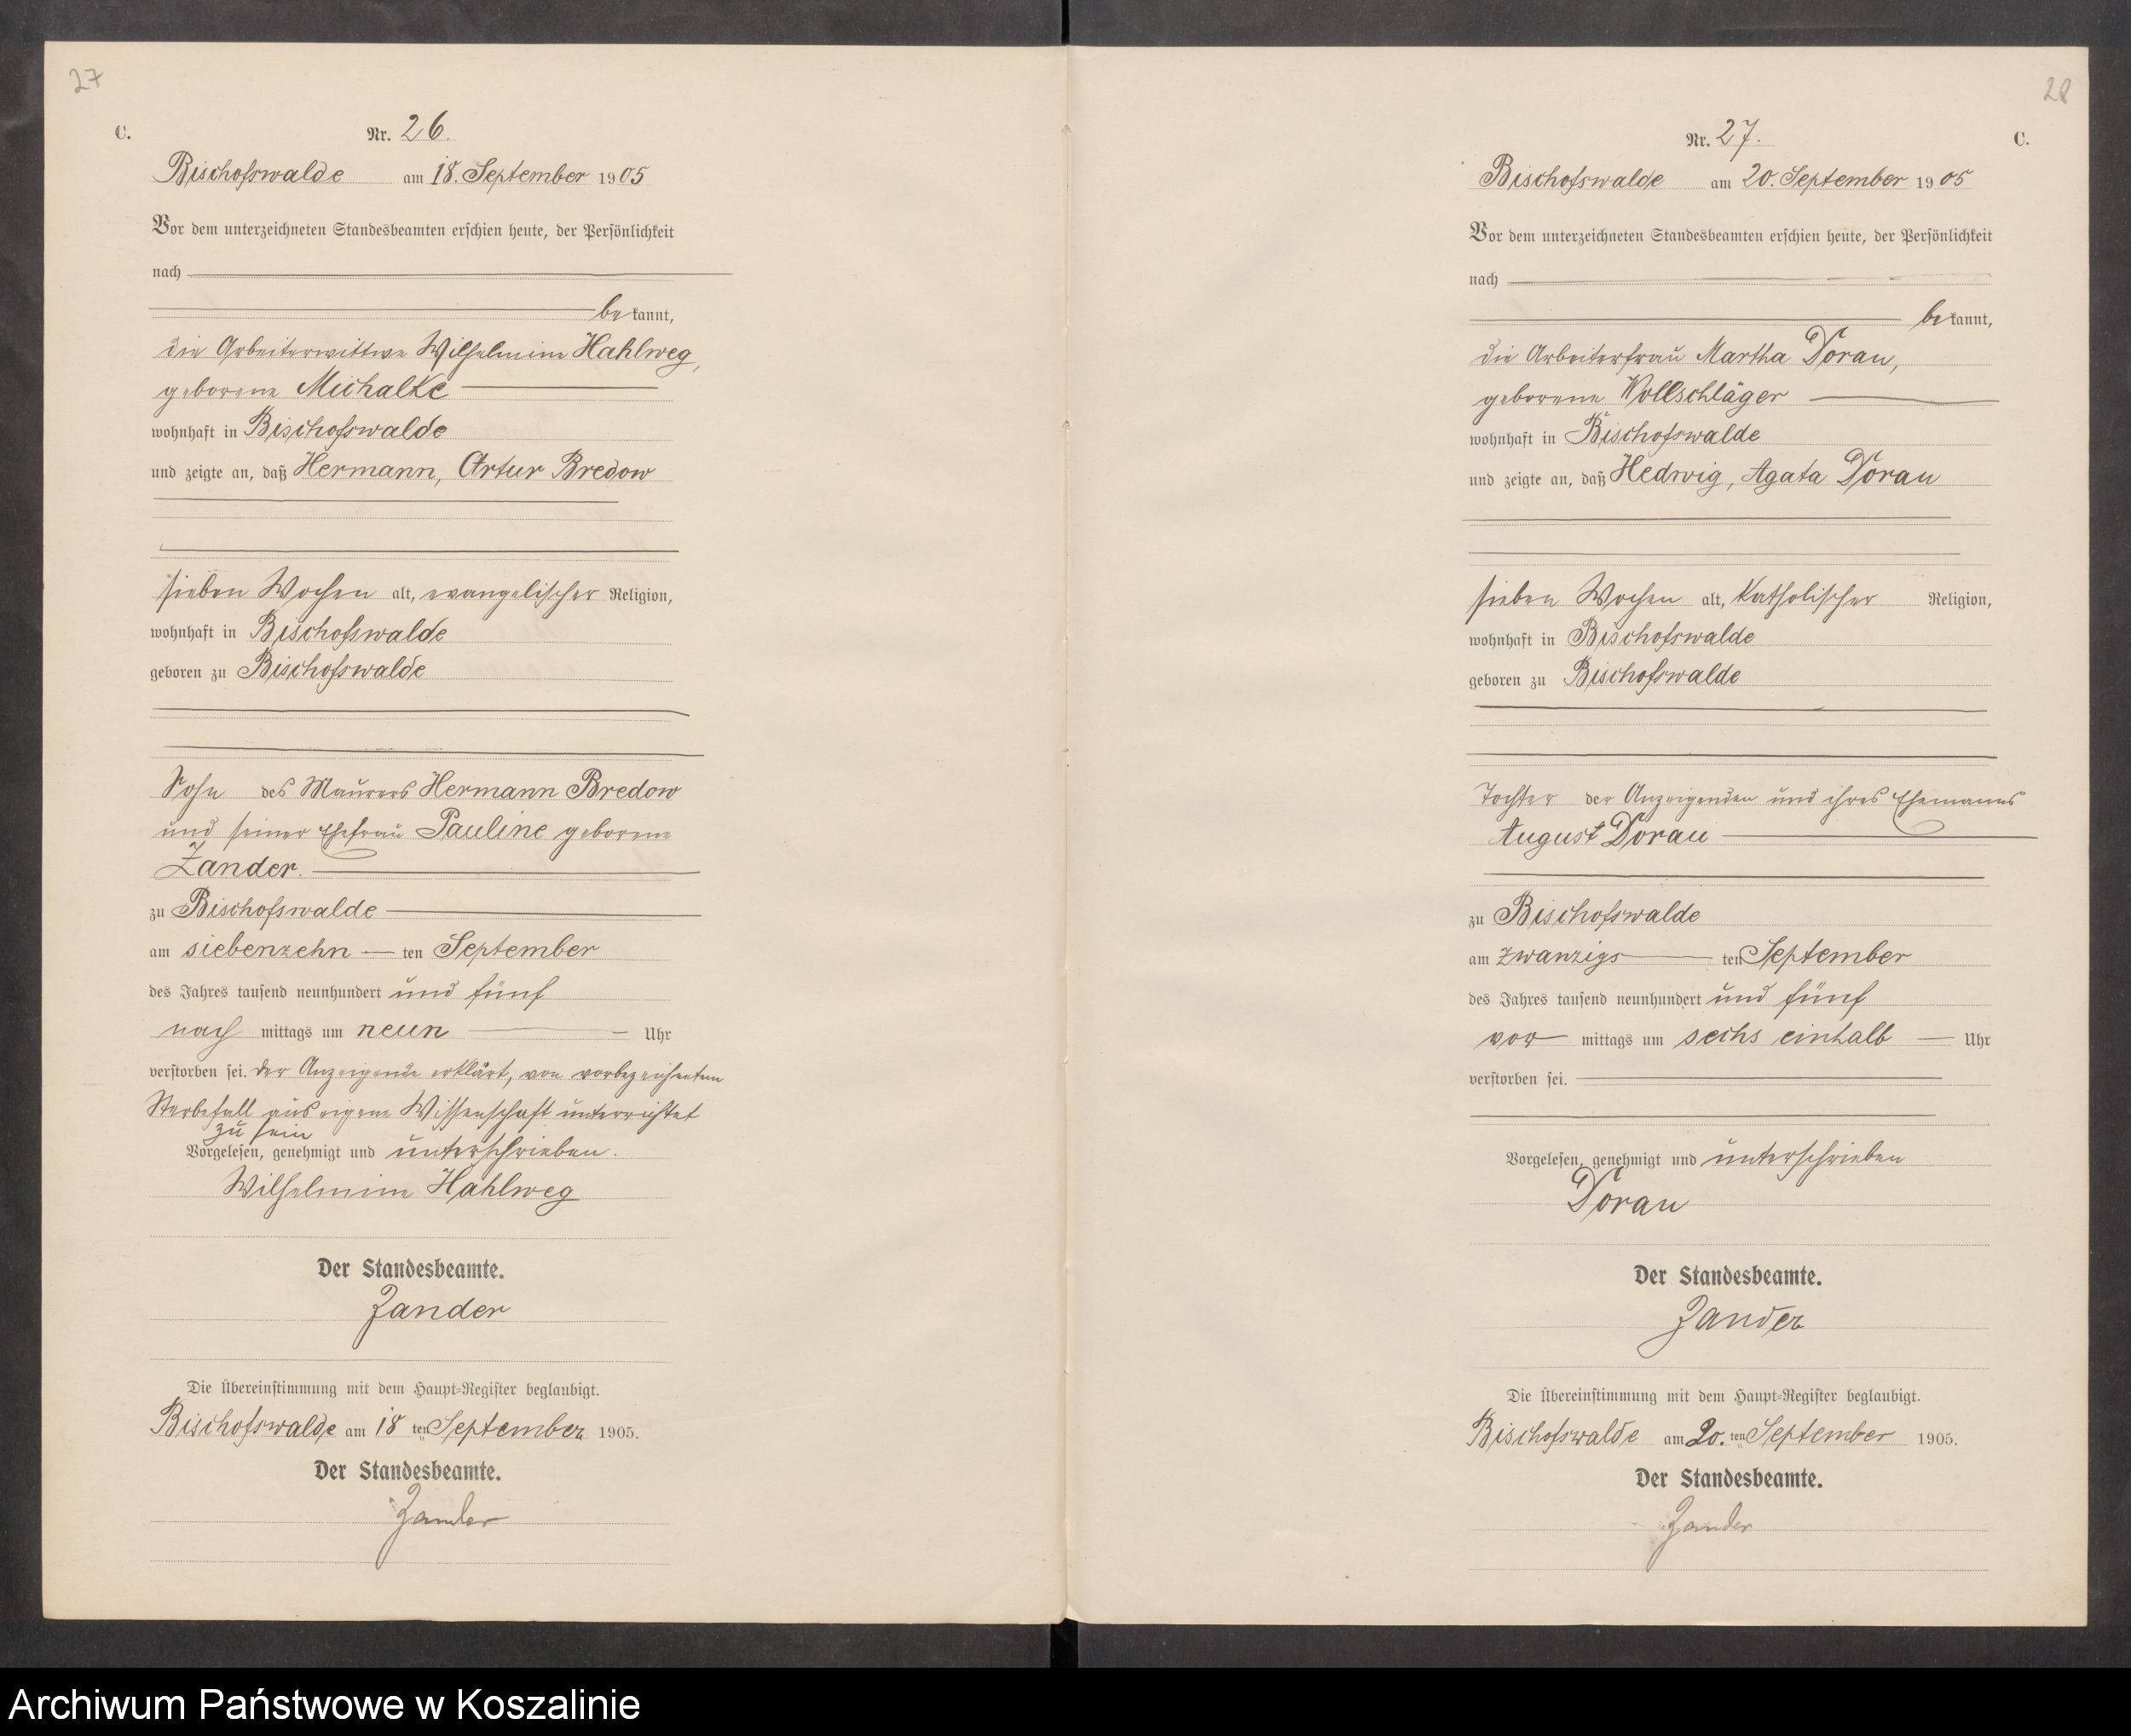 27
C.
Nr. 26.
Bischofswalde am 18. September 1905
Vor dem unterzeichneten Standesbeamten erschien heute, der Persönlichkeit
nach
be kannt,
die Arbeiterwittwe Wilhelmine Hahlweg,
geborene Michalke
wohnhaft in Bischofswalde
und zeigte an, daß Hermann, Artur Bredow
sieben Wochen alt, evangelischer Religion,
wohnhaft in Bischofswalde
geboren zu Bischofswalde
Sohn des Maurers Hermann Bredow
und seiner Ehefrau Pauline geborene
Zander.
zu Bischofswalde
am siebenzehn ten September
des Jahres tausend neunhundert und fünf
nach mittags um neun Uhr
verstorben sei. Der Anzeigende erklärt, von vorbezeichnetem
Sterbefall aus eigene Wissenschaft unterrichtet
zu sein
Vorgelesen, genehmigt und unterschrieben.
Wilhelmine Hahlweg
Der Standesbeamte.
Zander
Die Übereinstimmung mit dem Haupt-Register beglaubigt.
Bischofswalde am 18 ten September 1905.
Der Standesbeamte.
Zander
28
Nr. 27.
C.
Bischofswalde am 20. September 1905
Vor dem unterzeichneten Standesbeamten erschien heute, der Persönlichkeit
nach
be kannt,
die Arbeiterfrau Martha Dorau,
geborene Wollschläger
wohnhaft in Bischofswalde
und zeigte an, daß Hedwig, Agata Dorau
sieben Wochen alt, katholischer Religion,
wohnhaft in Bischofswalde
geboren zu Bischofswalde
Tochter der Anzeigenden und ihres Ehemanns
August Dorau
zu Bischofswalde
am zwanzigs ten September
des Jahres tausend neunhundert und fünf
vor mittags um sechs einhalb Uhr
verstorben sei.
Vorgelesen, genehmigt und unterschrieben
Dorau
Der Standesbeamte.
Zander
Die Übereinstimmung mit dem Haupt-Register beglaubigt.
Bischofswalde am 20. ten September 1905.
Der Standesbeamte.
Zander
Archiwum Państwowe w Koszalinie